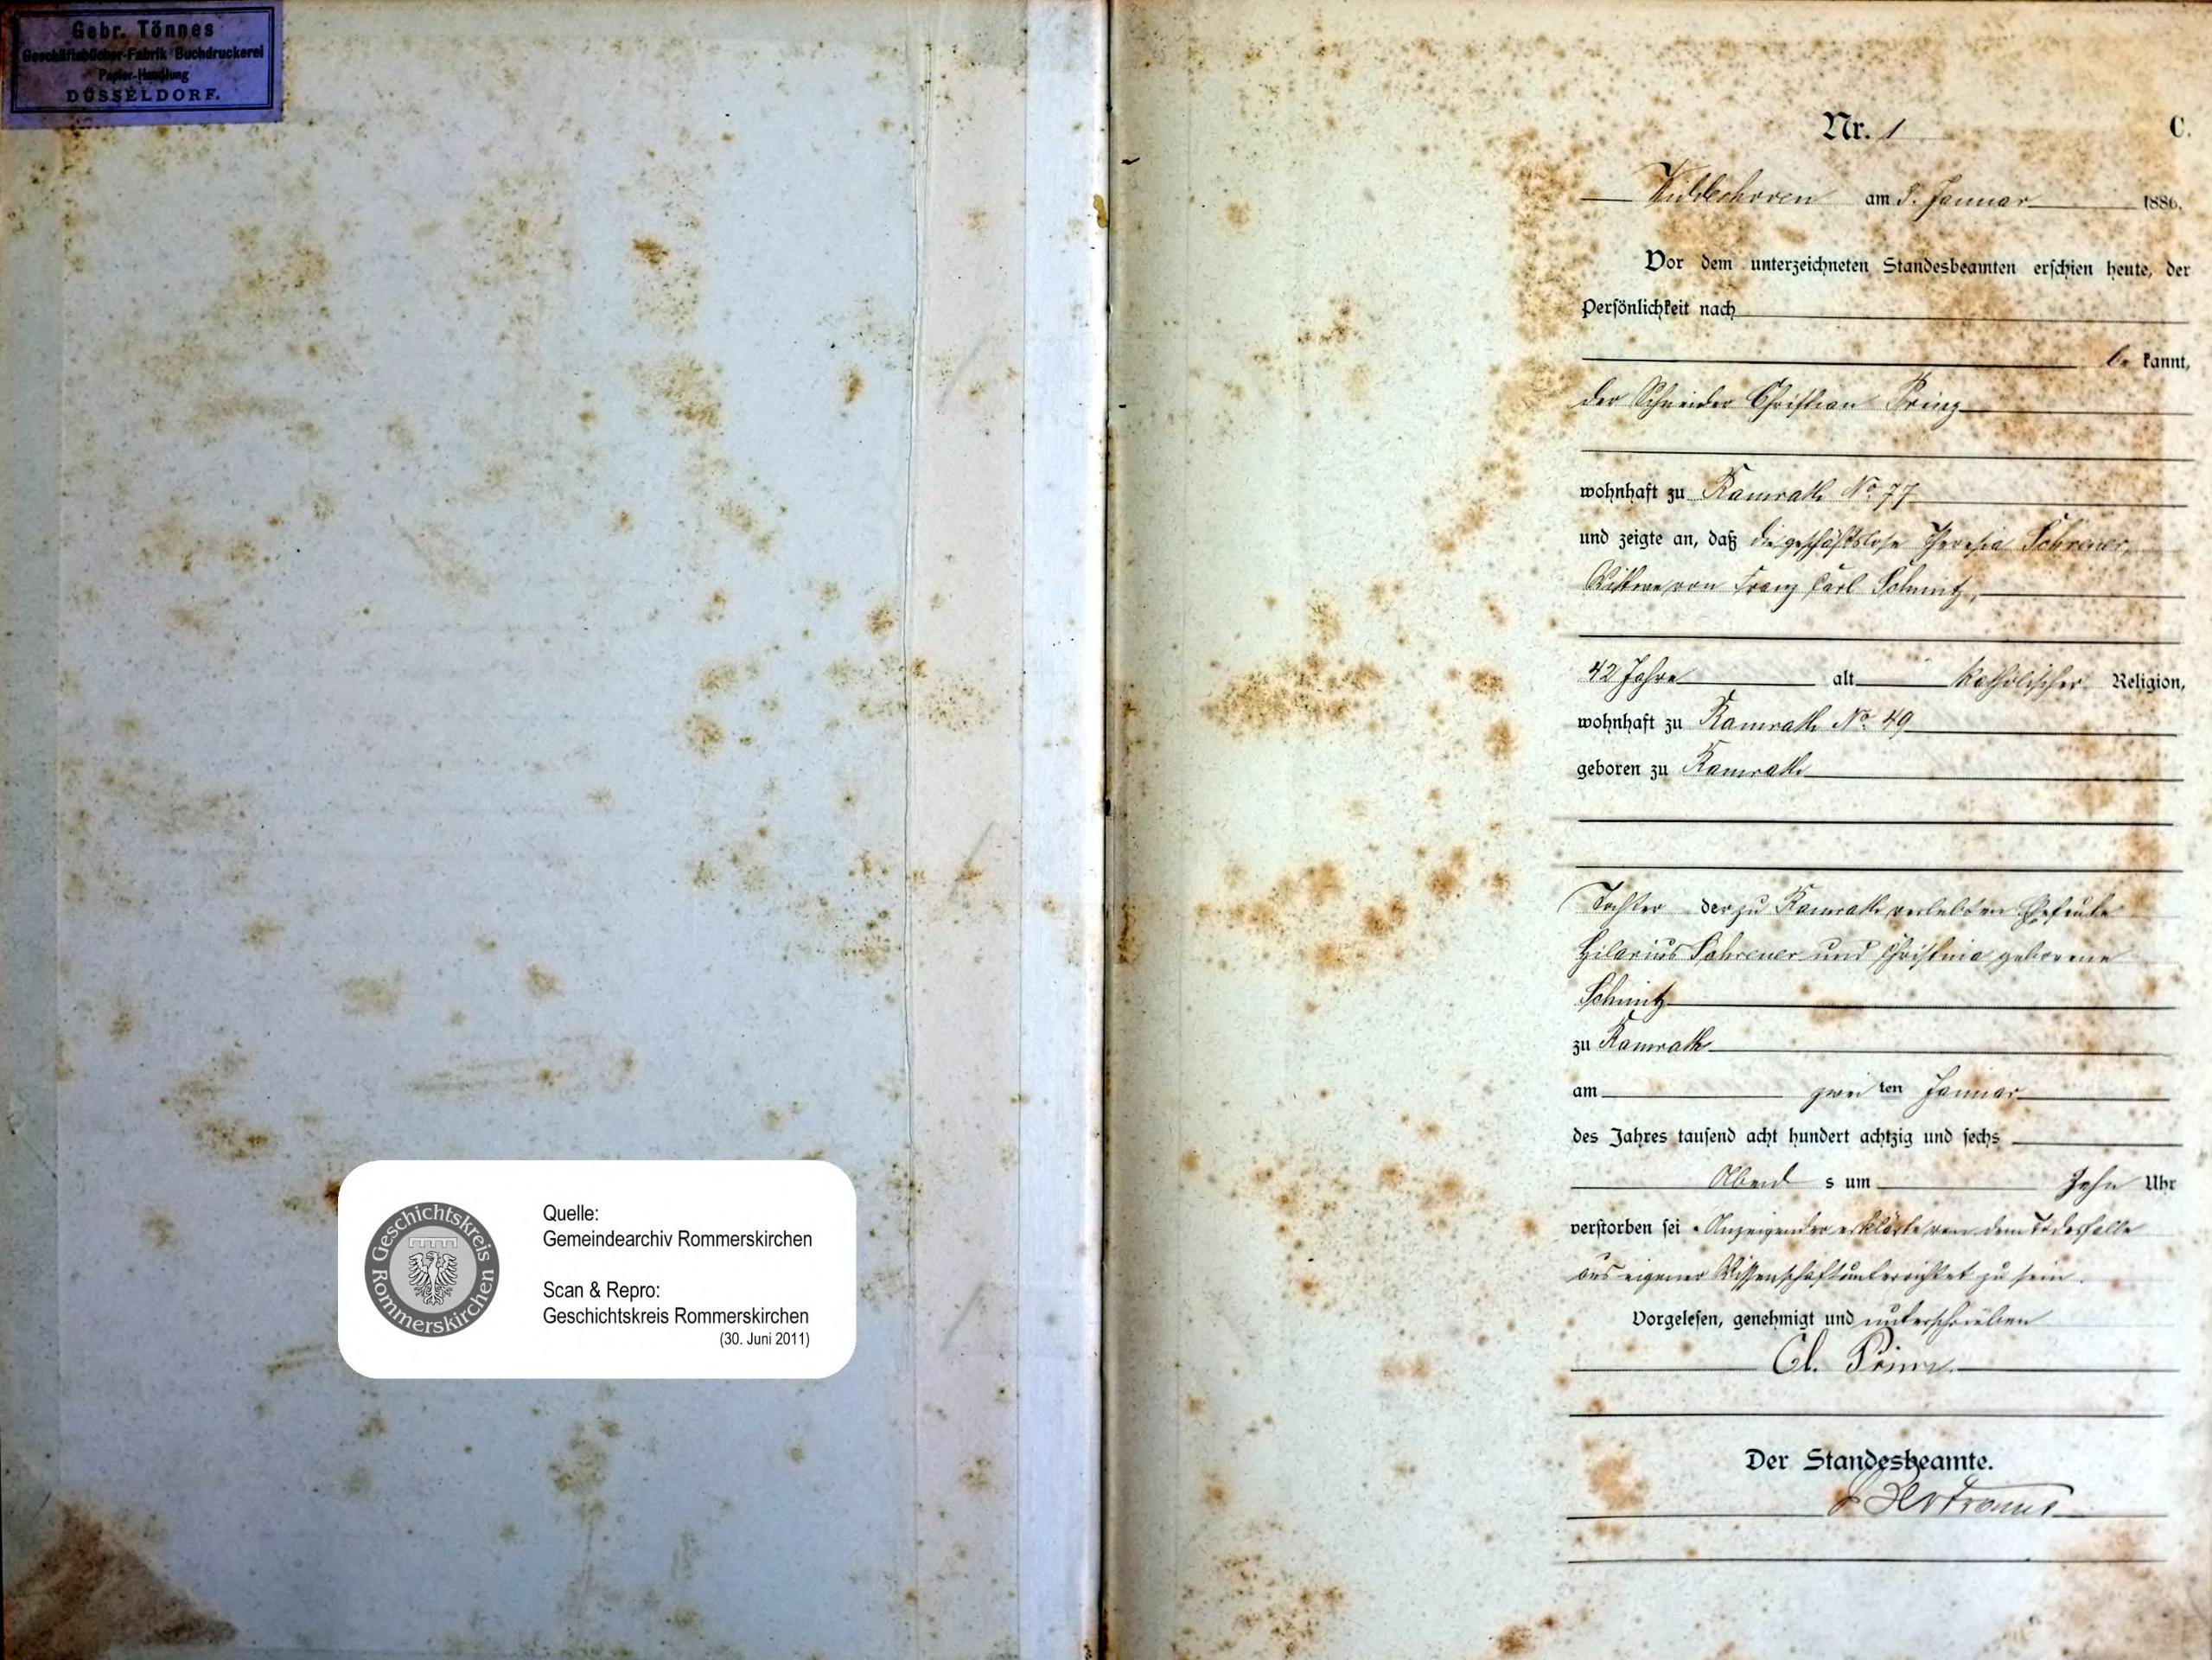 Gebr. Tönnes
Geschäftsbücher-Fabrik Buchdruckerei
Papier-Handlung
DÜSSELDORF.
Nr. 1 C.
Widdeshoven am 3. Januar 1886.
Vor dem unterzeichneten Standesbeamten erschien heute, der
Persönlichkeit nach
be kannt,
der Schneider Christian Prinz
wohnhaft zu Ramrath No 77
und zeigte an, daß die geschäftslose Theresia Schrener,
Wittwe von Franz Carl Schmitz,
42 Jahre alt katholischer Religion,
wohnhaft zu Ramrath No 49
geboren zu Ramrath
Tochter der zu Ramrath verlebten Eheleute
Hilarius Schrener und Christina geborene
Schmitz
zu Ramrath
am zwei ten Januar
des Jahres tausend acht hundert achtzig und sechs
Abend s um zehn Uhr
verstorben sei. Anzeigender erklärte von dem Todesfalle
aus eigener Wissenschaft unterrichtet zu sein.
Vorgelesen, genehmigt und unterschrieben
Der Standesbeamte.
Geschichtskreis Rommerskirchen
Quelle:
Gemeindearchiv Rommerskirchen
Scan & Repro:
Geschichtskreis Rommerskirchen
(30. Juni 2011)